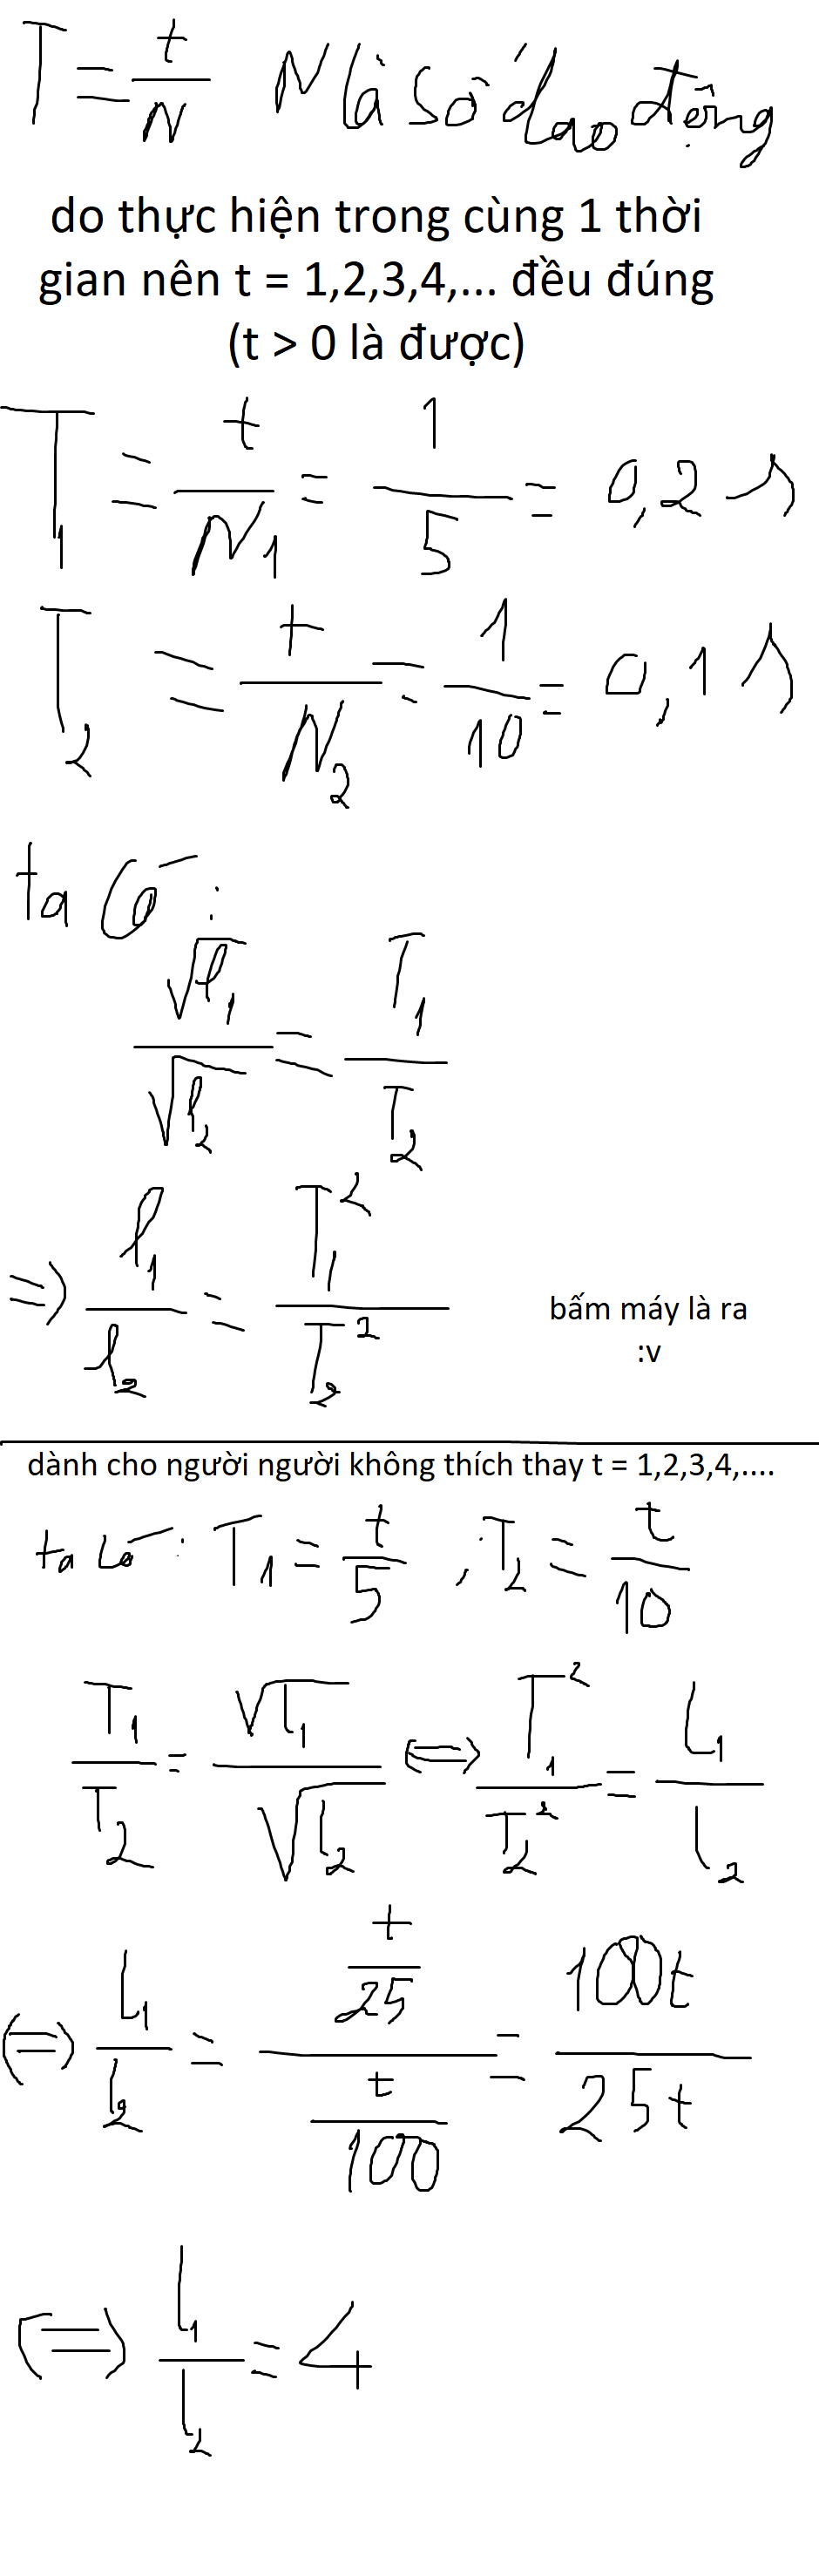 T = t/N N là số dao động
do thực hiện trong cùng 1 thời
gian nên t = 1,2,3,4,... đều đúng
(t > 0 là được)
T₁ = t/N₁ = 1/5 = 0,2 s
T₂ = t/N₂ = 1/10 = 0,1 s
ta có :
√l₁/√l₂ = T₁/T₂
=> l₁/l₂ = T₁²/T₂²
bấm máy là ra
:v
dành cho người người không thích thay t = 1,2,3,4,....
ta có : T₁ = t/5 , T₂ = t/10
T₁/T₂ = √l₁/√l₂ <=> T₁²/T₂² = l₁/l₂
<=> l₁/l₂ = (t/25)/(t/100) = 100t/25t
<=> l₁/l₂ = 4